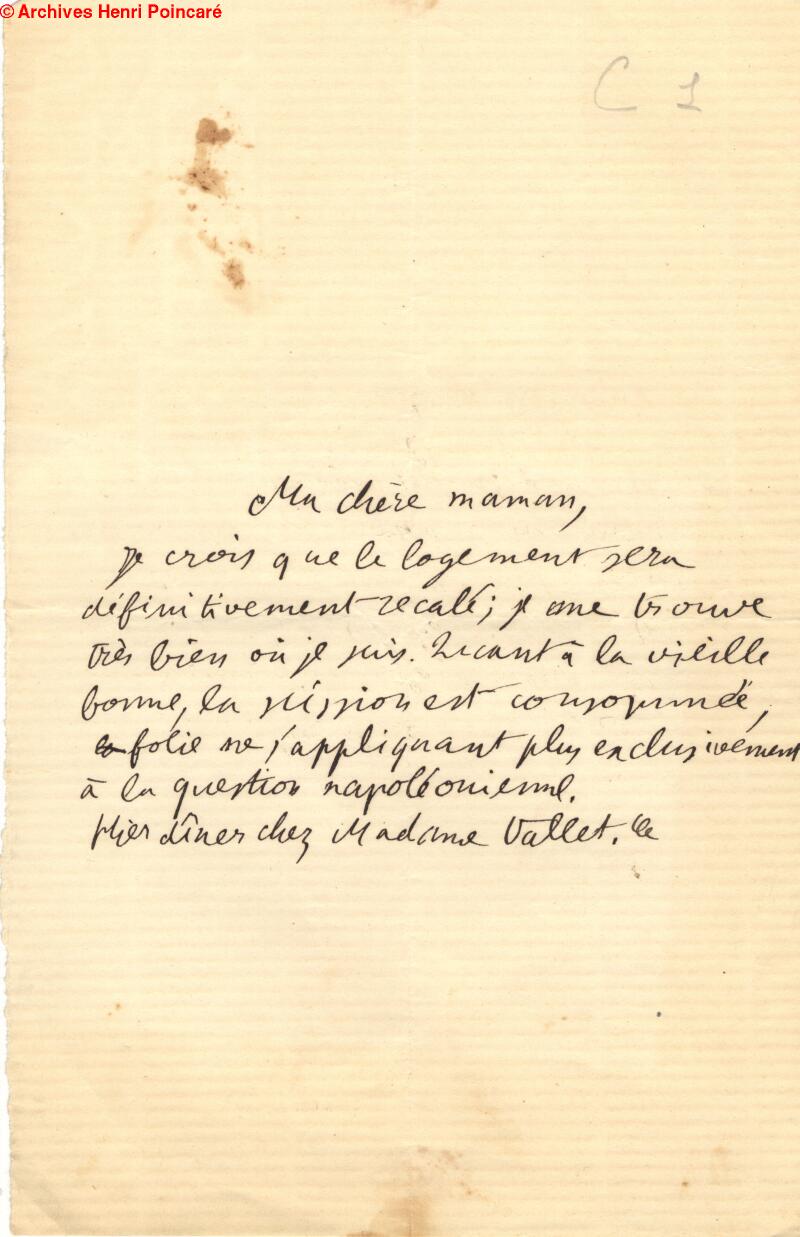 © Archives Henri Poincaré
C 1
Ma chère maman,
je crois que le logement sera
définitivement recalé; je me trouve
très bien où je suis. Quant à la vieille
bonne, la scission est consommée,
folie ne s'appliquant plus exclusivement
à la question napoléonienne.
Hier dîner chez Madame Vallet.